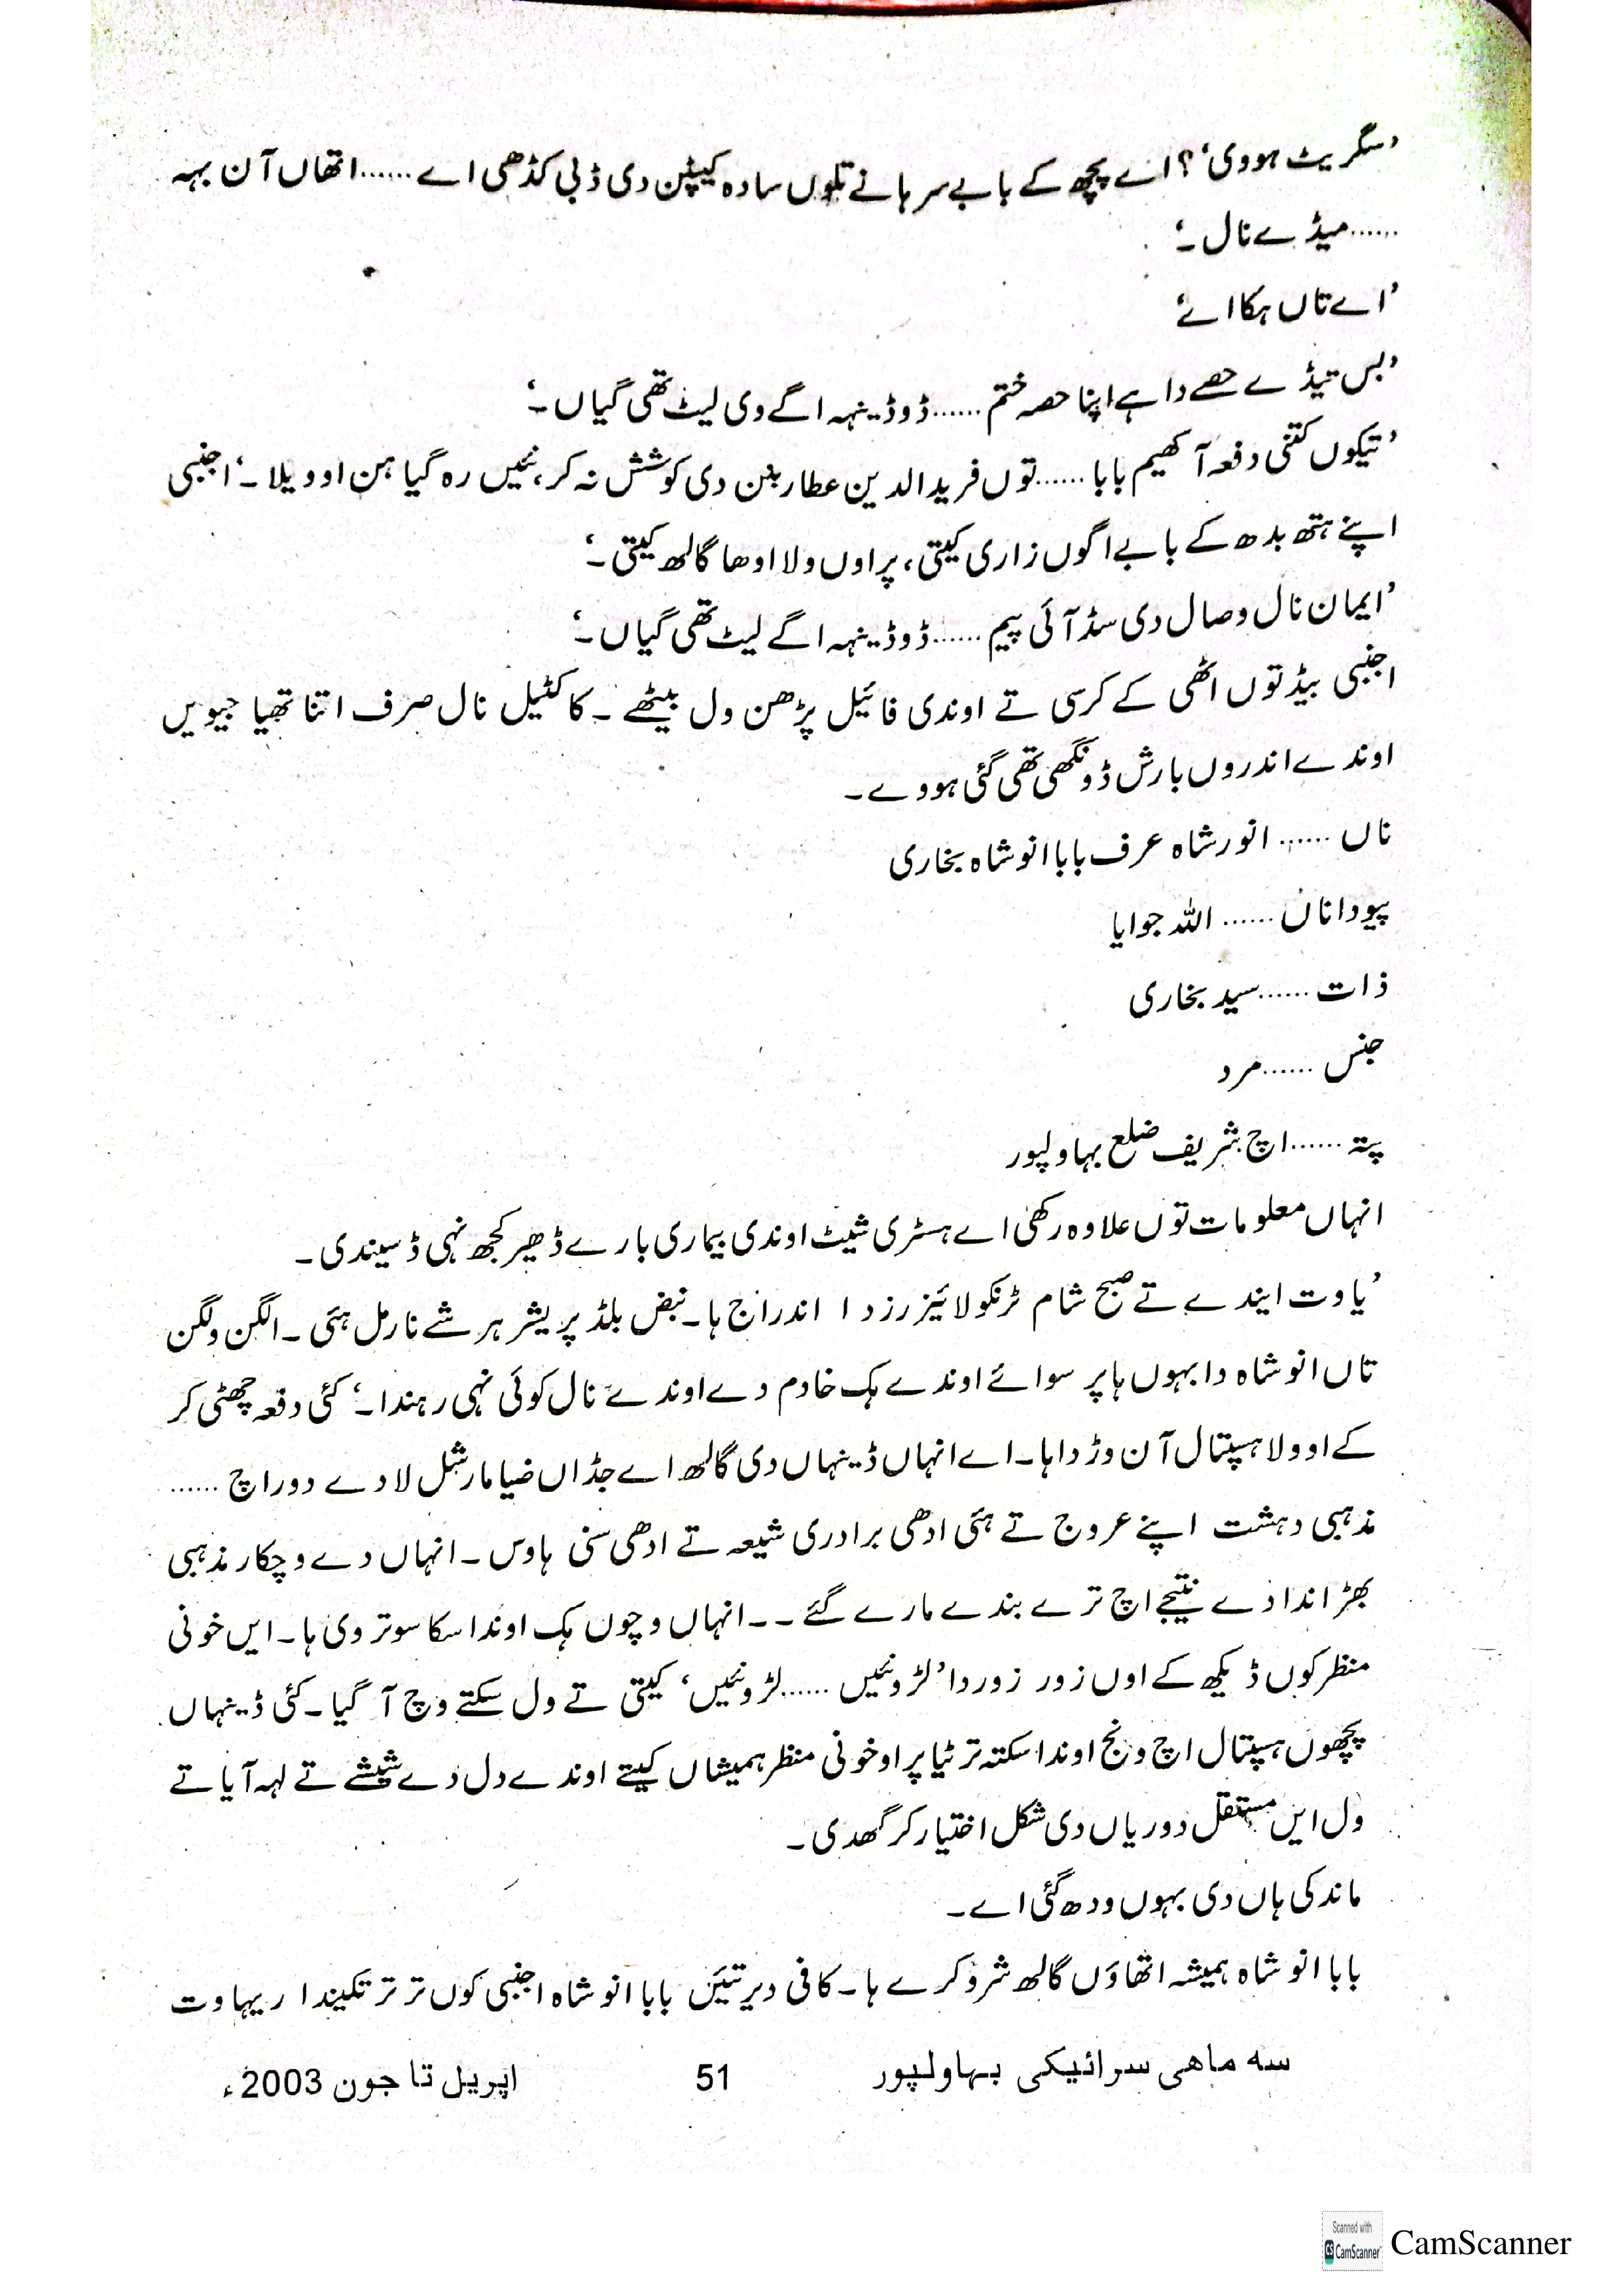 ’سگریٹ ہووی‘؟ اے پچھ کے بابے سرہانے تلوں سادہ کیپٹن دی ڈبی کڈھی اے ......اتھاں آن بہہ
......میڈے نال۔‘
’اے تاں ہکا اے‘
’بس تیڈے حصے دا ہے اپنا حصہ ختم ......ڈو ڈینہہ اگے وی لیٹ تھی گیاں۔‘
’تیکوں کتنی دفعہ آکھیم بابا ......توں فرید الدین عطار بنن دی کوشش نہ کر، نئیں رہ گیا ہن او ویلا۔‘ اجنبی
اپنے ہتھ بدھ کے بابے اگوں زاری کیتی، پر اوں ولا اوھا گالھ کیتی۔‘
’ایمان نال وصال دی سڈ آئی پیم ......ڈو ڈینہہ اگے لیٹ تھی گیاں۔‘
اجنبی بیڈ توں اٹھی کے کرسی تے اوندی فائیل پڑھن ول بیٹھے۔ کاکٹیل نال صرف اتنا تھیا جیویں
اوندے اندروں بارش ڈونگھی تھی گئی ہووے۔
ناں ...... انور شاہ عرف بابا انو شاہ بخاری
پیو دا ناں ...... اللہ جوایا
ذات ......سید بخاری
جنس ......مرد
پتہ ......اچ شریف ضلع بہاولپور
انہاں معلومات توں علاوہ رکھی اے ہسٹری شیٹ اوندی بیماری بارے ڈھیر کجھ نہی ڈسیندی۔
’یا وت ایندے تے صبح شام ٹرنکولائیزرز دا اندراج ہا۔ نبض بلڈ پریشر ہر شے نارمل ہئی۔ الگن ولگن
تاں انو شاہ دا بہوں ہا پر سوائے اوندے ہک خادم دے اوندے نال کوئی نہی رہندا۔‘ کئی دفعہ چھٹی کر
کے او ولا ہسپتال آن وڑدا ہا۔ اے انہاں ڈینہاں دی گالھ اے جڈاں ضیا مارشل لا دے دور اچ ......
مذہبی دہشت اپنے عروج تے ہئی ادھی برادری شیعہ تے ادھی سنی ہاوس۔ انہاں دے وچکار مذہبی
بھڑاندا دے نتیجے اچ ترے بندے مارے گئے۔۔ انہاں وچوں ہک اوندا سکا سوتر وی ہا۔ ایں خونی
منظر کوں ڈیکھ کے اوں زور زور دا ’لڑو نئیں ......لڑو نئیں‘ کیتی تے ول سکتے وچ آ گیا۔ کئی ڈینہاں
پچھوں ہسپتال اچ ونج اوندا سکتہ ترٹیا پر او خونی منظر ہمیشاں کیتے اوندے دل دے شیشے تے لہہ آیا تے
ول ایں مستقل دوریاں دی شکل اختیار کر گھدی۔
ماندکی ہاں دی بہوں ودھ گئی اے۔
بابا انو شاہ ہمیشہ اتھاؤں گالھ شرو کرے ہا۔ کافی دیر تئیں بابا انو شاہ اجنبی کوں تر تر تکیندا ریہا وت
سه ماهی سرائیکی بہاولپور 51 اپریل تا جون 2003ء
Scanned with
CamScanner CamScanner